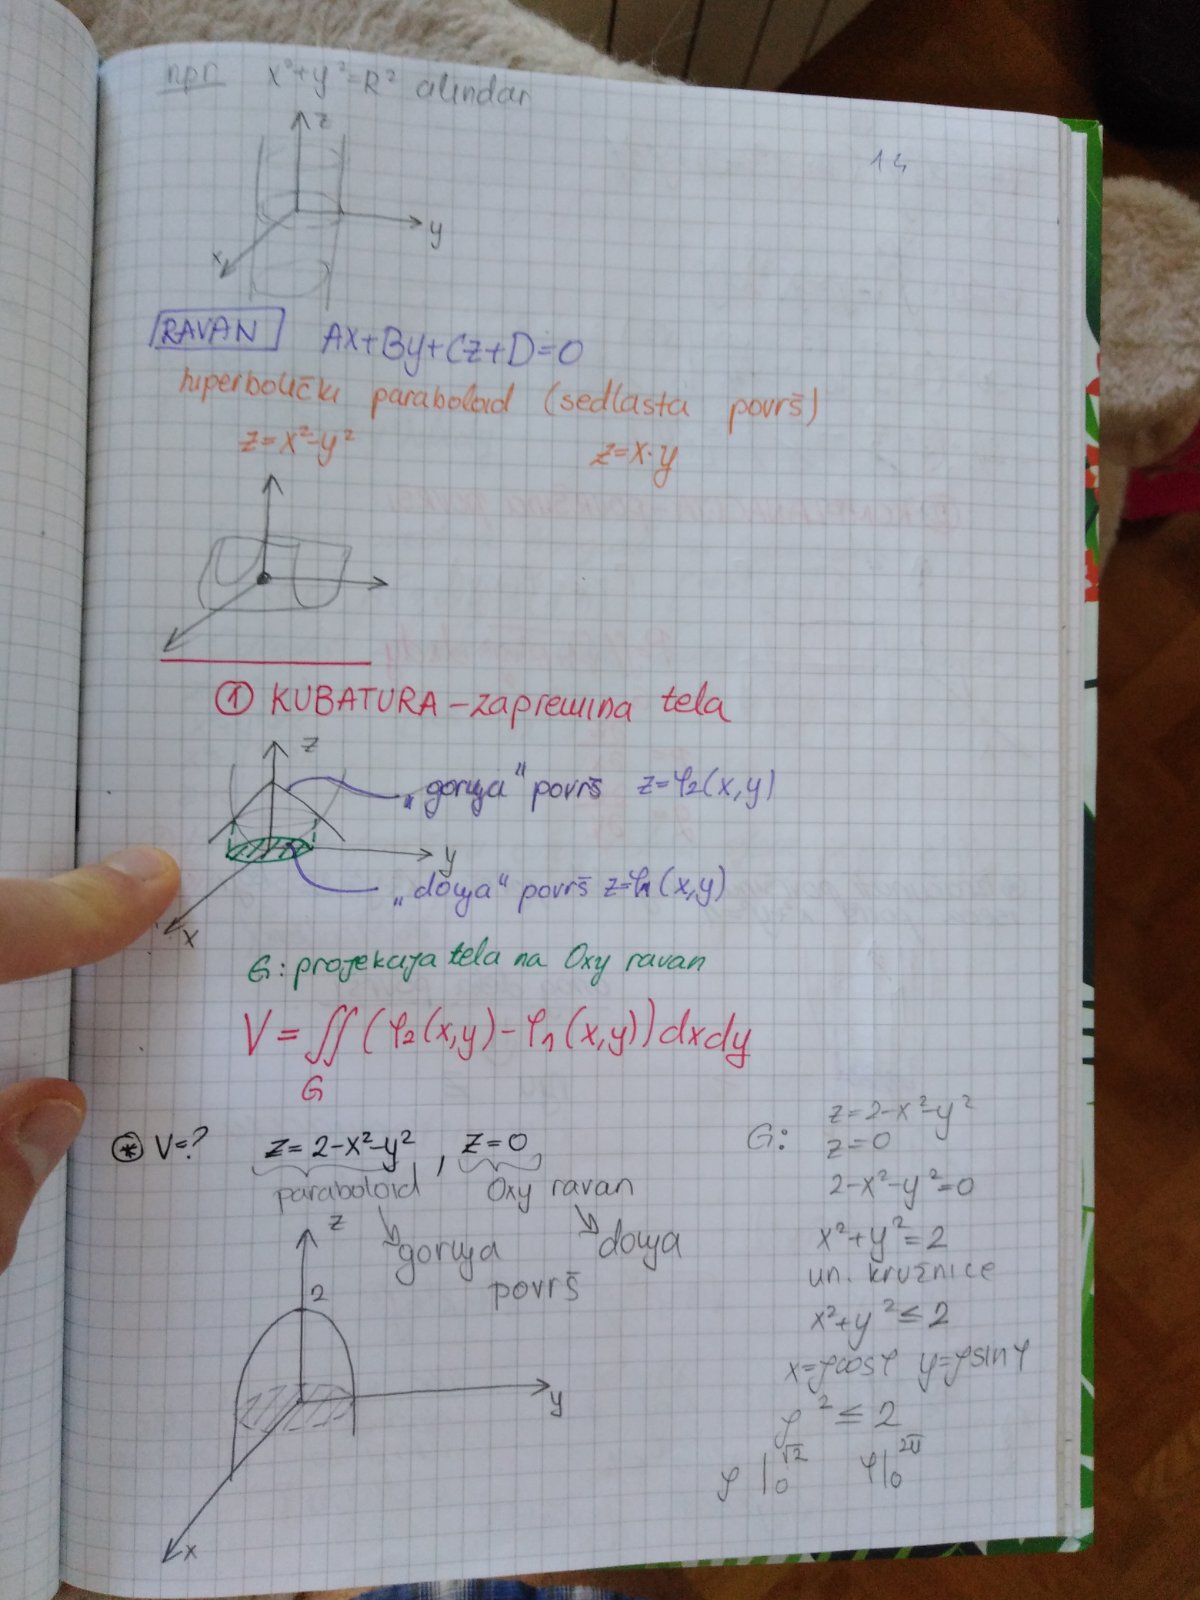 npr x²+y²=R² cilindar
14
z
y
x
RAVAN Ax+By+Cz+D=0
hiperbolički paraboloid (sedlasta površ)
z=x²-y² z=x·y
① KUBATURA - zapremina tela
z
„gornja" površ z=φ₂(x,y)
y
„donja" površ z=φ₁(x,y)
x
G: projekcija tela na Oxy ravan
V = ∬ (φ₂(x,y) - φ₁(x,y)) dxdy
G
⊛ V=? z=2-x²-y², z=0
paraboloid Oxy ravan
gornja donja
površ
z
2
y
x
G: z=2-x²-y²
z=0
2-x²-y²=0
x²+y²=2
un. kružnice
x²+y²≤2
x=ρcosφ y=ρsinφ
ρ²≤2
ρ|₀^√2 φ|₀^2π